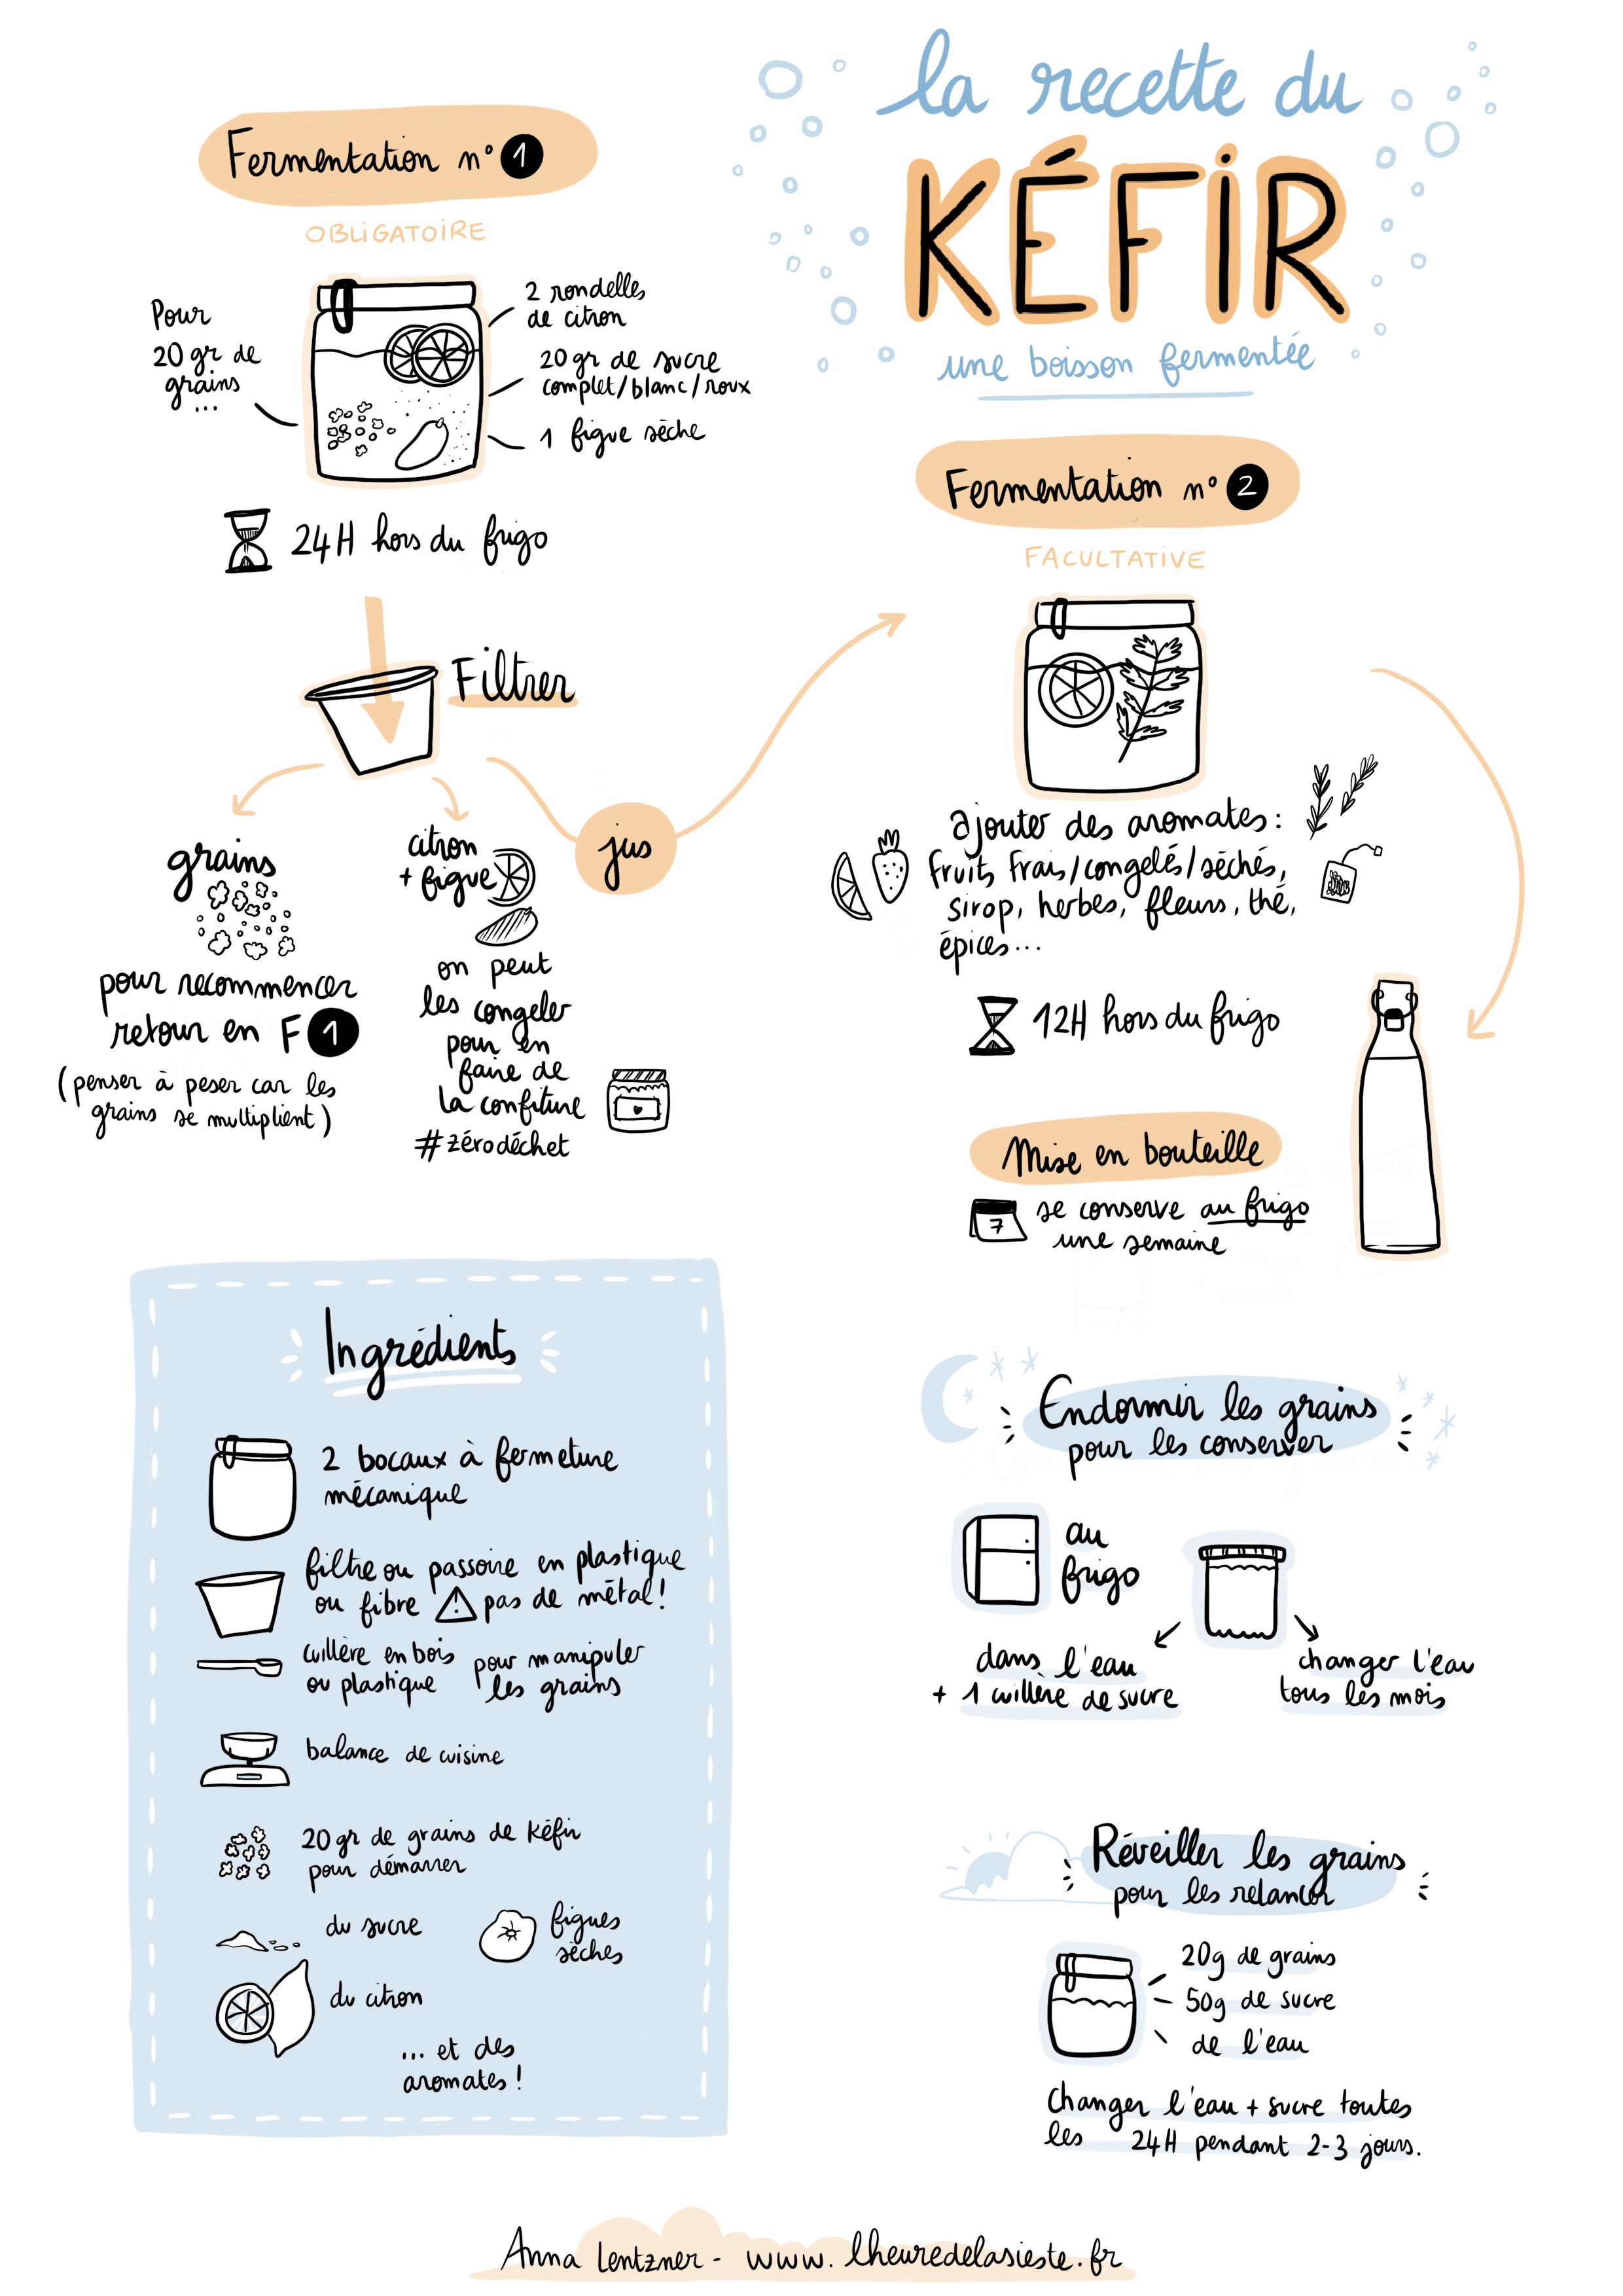 la recette du
KÉFIR
une boisson fermentée
Fermentation n° 1
OBLIGATOIRE
Pour
20 gr de
grains
...
2 rondelles
de citron
20 gr de sucre
complet/blanc/roux
1 figue sèche
24H hors du frigo
Filtrer
grains
pour recommencer
retour en F 1
(penser à peser car les
grains se multiplient)
citron
+ figue
on peut
les congeler
pour en
faire de
la confiture
#zérodéchet
jus
Fermentation n° 2
FACULTATIVE
ajouter des aromates :
fruits frais/congelés/séchés,
sirop, herbes, fleurs, thé,
épices...
12H hors du frigo
Mise en bouteille
7
se conserve au frigo
une semaine
Ingrédients
2 bocaux à fermeture
mécanique
filtre ou passoire en plastique
ou fibre ! pas de métal !
cuillère en bois
ou plastique
pour manipuler
les grains
balance de cuisine
20 gr de grains de kéfir
pour démarrer
du sucre
figues
sèches
du citron
... et des
aromates !
Endormir les grains
pour les conserver
au
frigo
dans l'eau
+ 1 cuillère de sucre
changer l'eau
tous les mois
Réveiller les grains
pour les relancer
20g de grains
50g de sucre
de l'eau
Changer l'eau + sucre toutes
les 24H pendant 2-3 jours.
Anna Lentzner - www.lheuredelasieste.fr